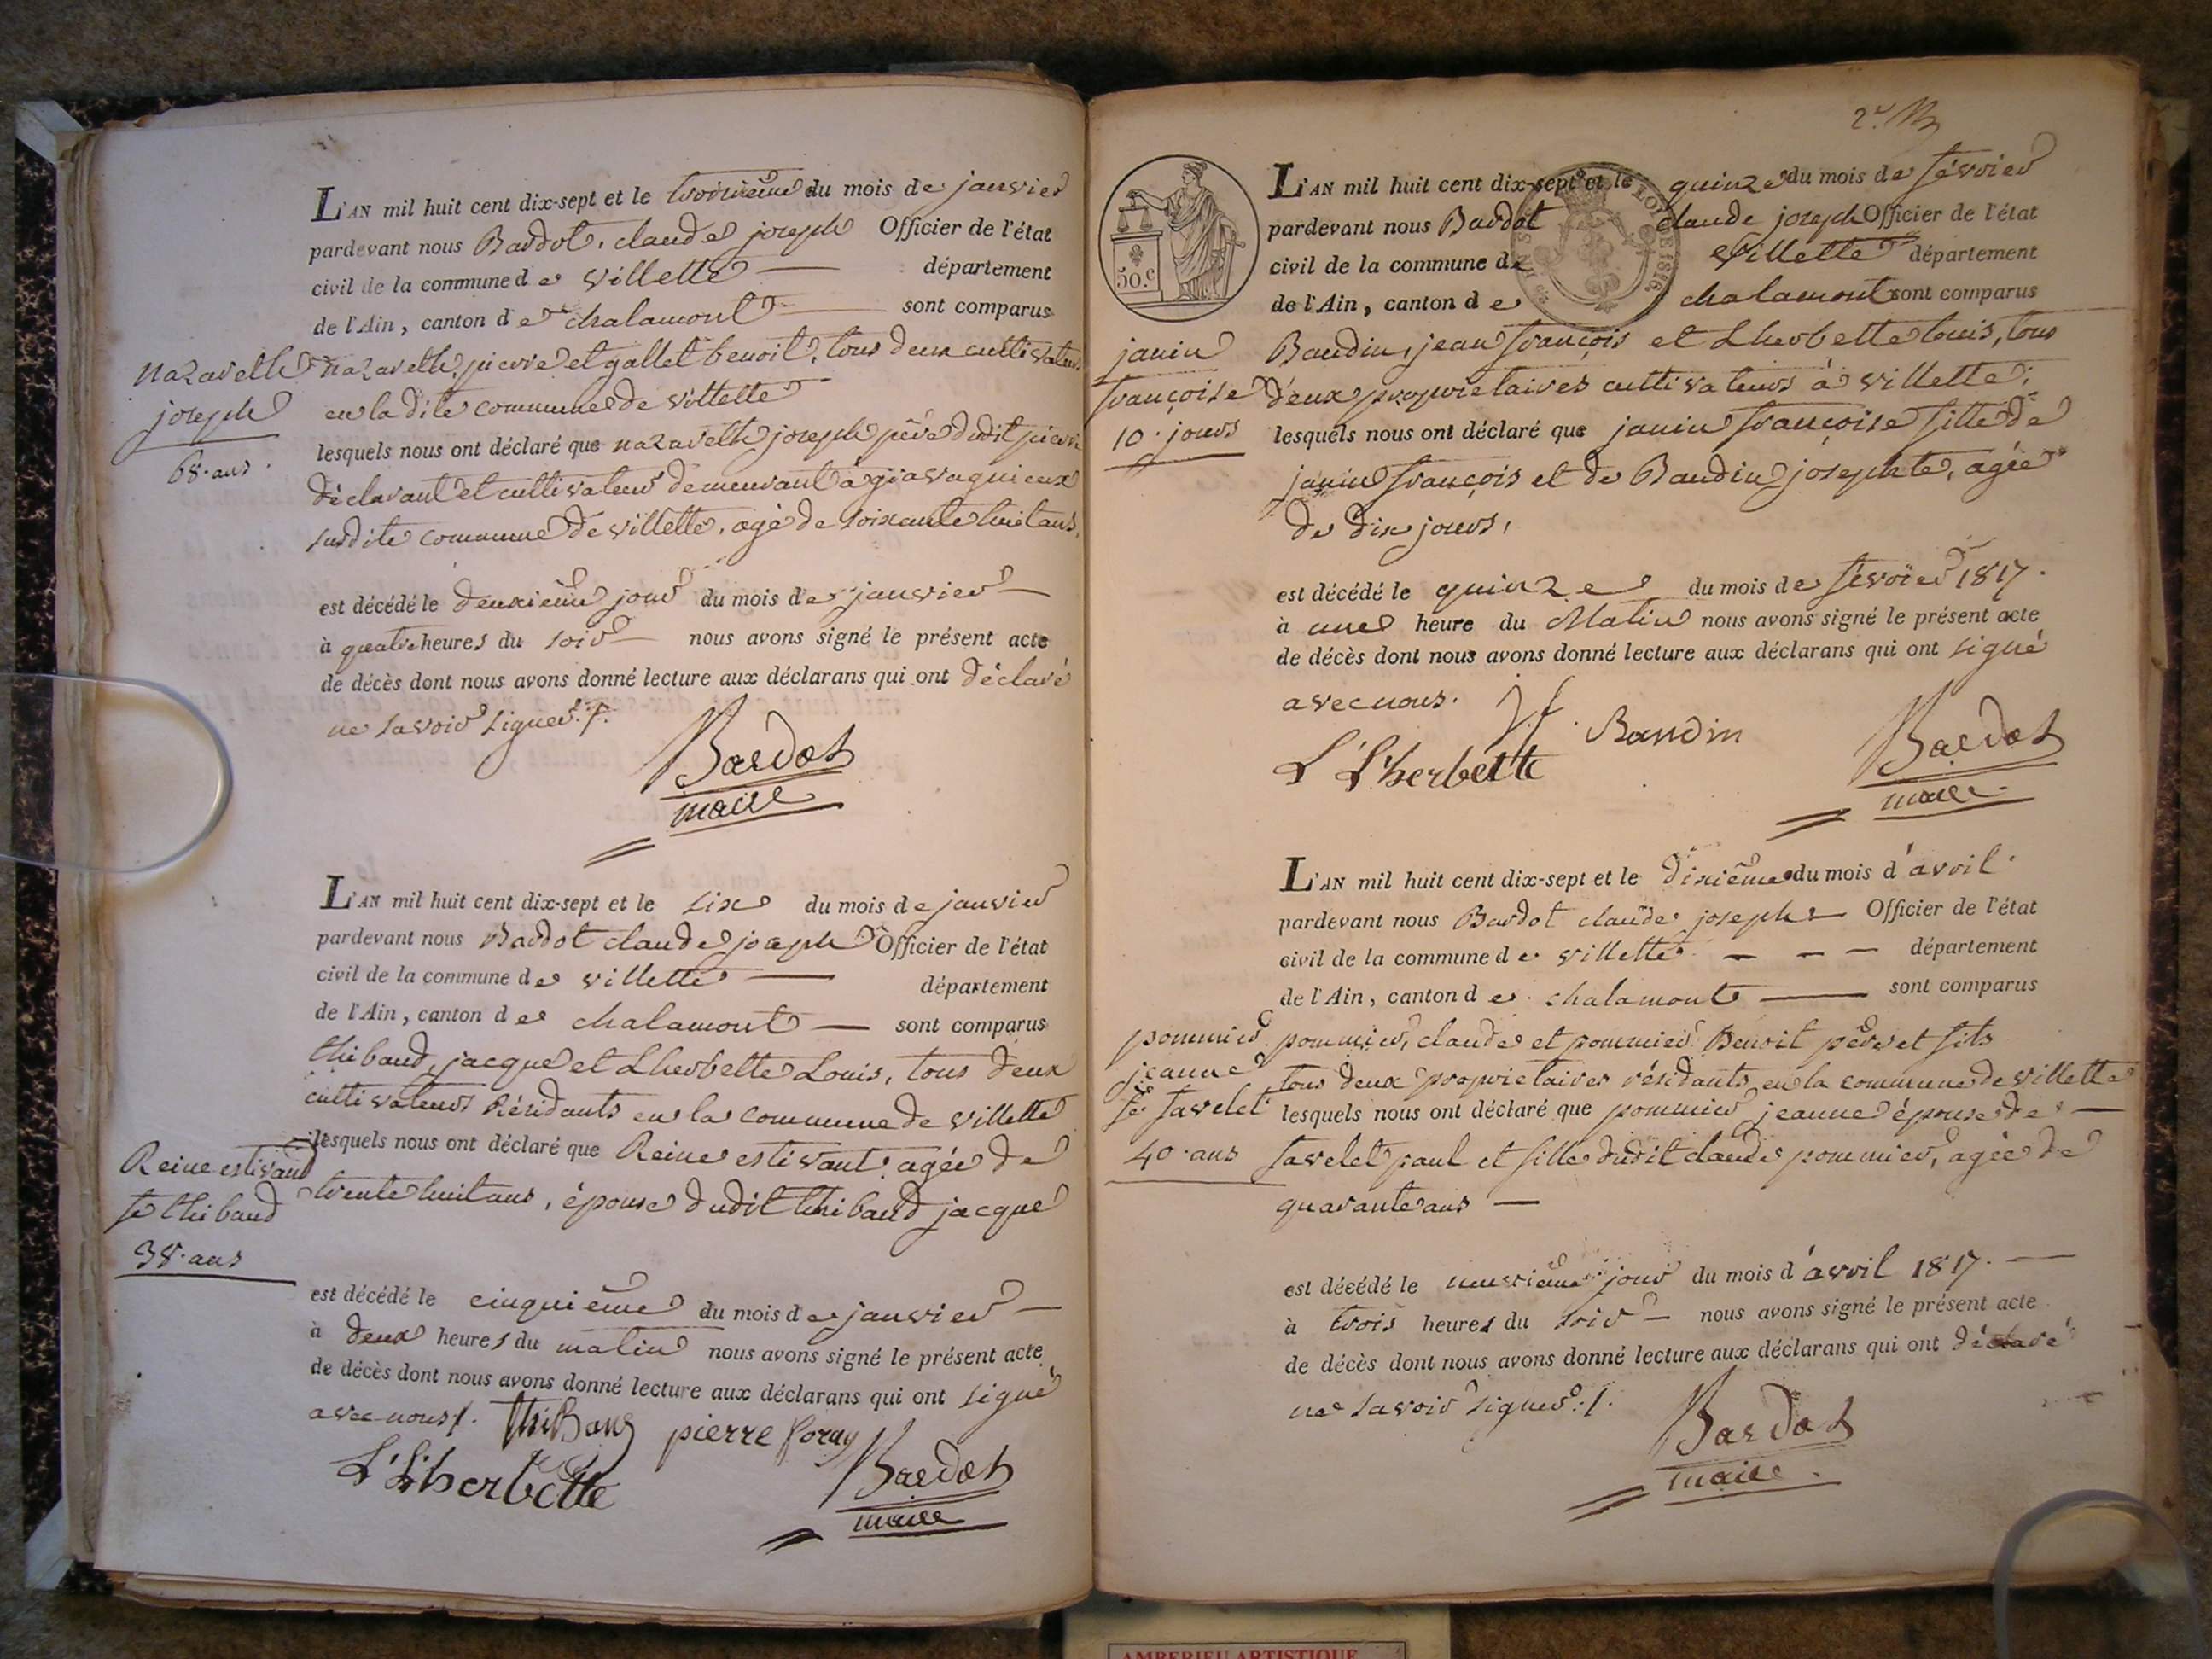 L'AN mil huit cent dix-sept et le troisième du mois de janvier
pardevant nous Bardot, claude joseph Officier de l'état
civil de la commune de villette département
de l'Ain, canton de chalamont sont comparus
nazareth pierre et gallet benoit, tous deux cultivateurs
en la dite commune de villette
lesquels nous ont déclaré que nazareth joseph père dudit pierre
déclarant et cultivateur demeurant à gravagnieux
susdite commune de villette, agé de soixante huit ans,
est décédé le deuxième jour du mois de janvier
à quatre heures du soir nous avons signé le présent acte
de décès dont nous avons donné lecture aux déclarans qui ont déclaré
ne savoir signer.
Bardot
maire
nazareth
joseph
68. ans.
L'AN mil huit cent dix-sept et le six du mois de janvier
pardevant nous Bardot claude joseph Officier de l'état
civil de la commune de villette département
de l'Ain, canton de chalamont sont comparus
thibaud, jacque et Lherbette Louis, tous deux
cultivateurs Résidants en la commune de villette
lesquels nous ont déclaré que Reine estivant, agée de
trente huit ans, épouse dudit thibaud jacque
est décédé le cinquième du mois de janvier
à deux heures du matin nous avons signé le présent acte
de décès dont nous avons donné lecture aux déclarans qui ont signé
avec nous. thiBaud pierre foray
L'Lherbette
Bardot
maire
Reine estivant
fe thibaud
38. ans
2e
50.c
L'AN mil huit cent dix-sept et le quinze du mois de février
pardevant nous Bardot claude joseph Officier de l'état
civil de la commune de villette département
de l'Ain, canton de chalamont sont comparus
Baudin, jean françois et Lherbette louis, tous
deux propriétaires cultivateurs à villette;
lesquels nous ont déclaré que janin françoise fille de
janin françois et de Baudin josephte, agée
de dix jours,
est décédé le quinze du mois de février 1817.
à une heure du Matin nous avons signé le présent acte
de décès dont nous avons donné lecture aux déclarans qui ont signé
avec nous.
Baudin
L'Lherbette
Bardot
maire
janin
françoise
10. jours
L'AN mil huit cent dix-sept et le dixième du mois d'avril
pardevant nous Bardot claude joseph Officier de l'état
civil de la commune de villette département
de l'Ain, canton de chalamont sont comparus
pommier, claude et pommier Benoit père et fils
tous deux propriétaires résidants en la commune de villette
lesquels nous ont déclaré que pommier jeanne épouse de
favelet paul et fille dudit claude pommier, agée de
quarante ans
est décédé le neuvième jour du mois d'avril 1817.
à trois heures du soir nous avons signé le présent acte
de décès dont nous avons donné lecture aux déclarans qui ont déclaré
ne savoir signer.
Bardot
maire
pommier
jeanne
fe favelet
40. ans
AMBERIEU ARTISTIQUE